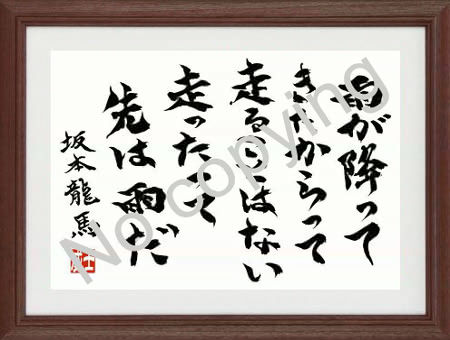 雨が降って
きたからって
走るこはない
走ったって
先は雨だ
坂本龍馬
No copying